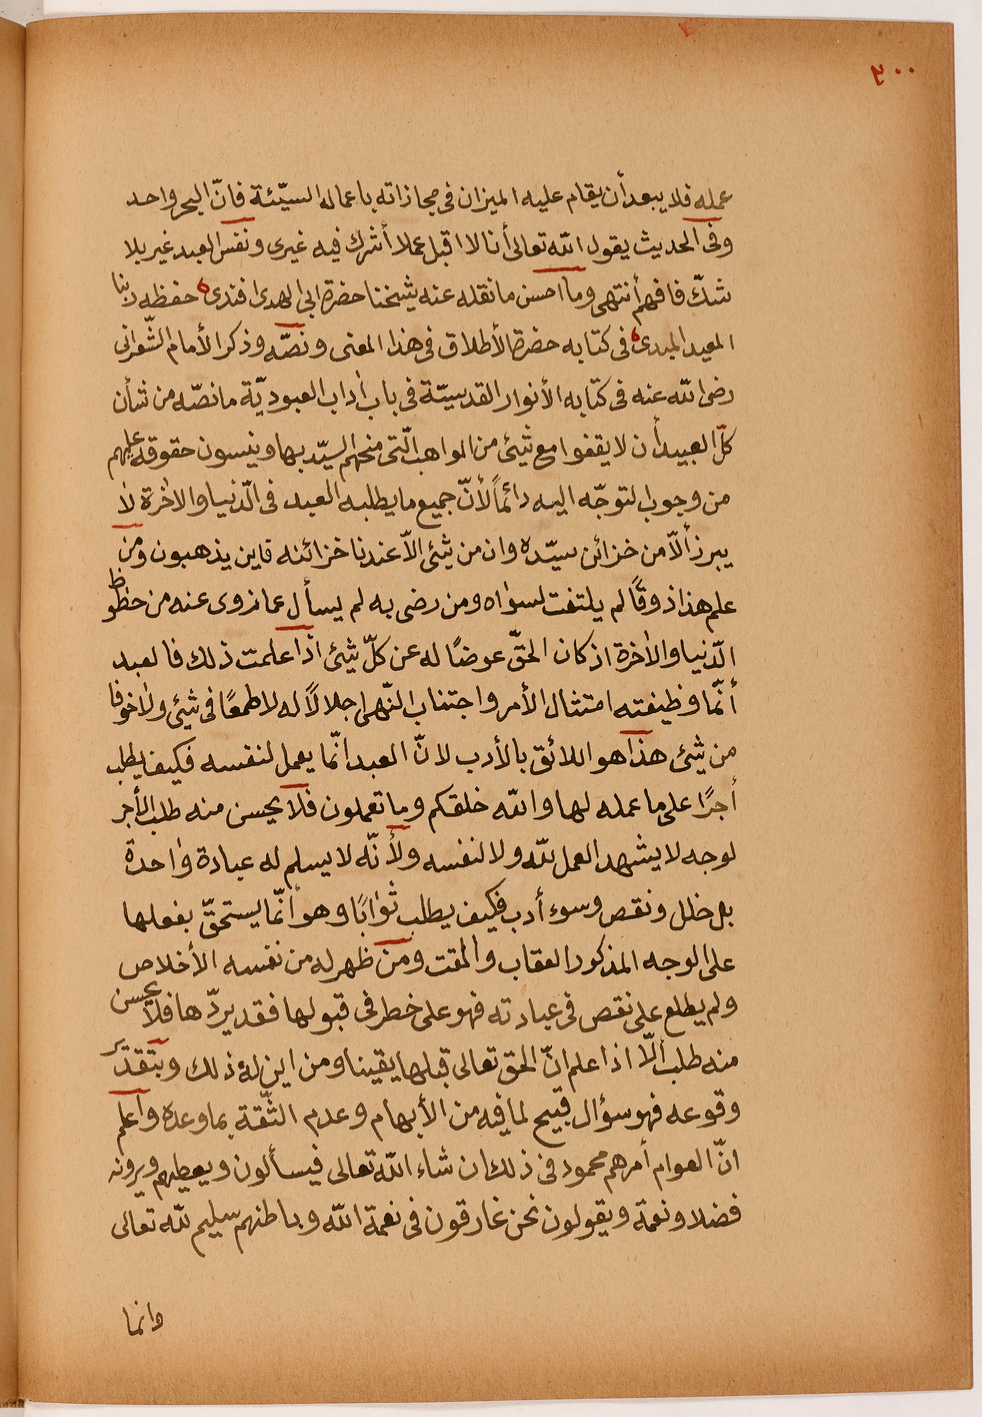 ٣٠٠
عمله فلا يبعد أن يقام عليه الميزان فى مجازاته باعماله السيّئة فانّ البحر واحد
وفى الحديث يقول الله تعالى أنا لا اقبل عملا أشرك فيه غيرى ونفس العبد غير بلا
شكّ فافهم أنتهى وما احسن ما نقله عنه شيخنا حضرة ابى الهدى افندى حفظه ربنا
المعيد المبدئ فى كتابه حضرة الأطلاق فى هذا المعنى ونصّه وذكر الأمام الشّعرانى
رضى الله عنه فى كتابه الأنوار القدسيّة فى باب اٰداب العبوديّة ما نصّه من شأن
كلّ العبيد أن لا يقفوا مع شيئ من المواهب الّتى منحهم السيّد بها وينسون حقوقه عليهم
من وجوب التوجّه اليه دائماً لأنّ جميع ما يطلبه العبد فى الدّنيا والاٰخرة لا
يبرز ألّا من خزائن سيّده وان من شيئ الاّ عندنا خزائنه فاين يذهبون ومن
علم هذا ذوقًا لم يلتفت لسواه ومن رضى به لم يسأل عما زوى عنه من حظوظ
الدّنيا والاٰخرة اذ كان الحقّ عوضًا له عن كلّ شيئ اذا علمت ذلك فالعبد
أنّما وظيفته امتثال الأمر واجتناب النّهى اجلالاً له لا طمعًا فى شيئ ولا خوفا
من شيئ هذا هو اللائق بالأدب لانّ العبد انّما يعمل لنفسه فكيف يطلب
أجرًا على ما عمله لها والله خلقكم وما تعملون فلا يحسن منه طلب الأجر
لوجه لا يشهد العمل لله ولا لنفسه ولأنّه لا يسلم له عبادة واحدة
بل خلل ونقص وسوء أدب فكيف يطلب ثوابًا وهو أنّما يستحقّ بفعلها
على الوجه المذكور العقاب والمقت ومن ظهر له من نفسه الأخلاص
ولم يطلع على نقص فى عبادته فهو على خطر فى قبولها فقد يردّها فلا يحسن
منه طلب ألّا اذا علم انّ الحق تعالى قبلها يقينا ومن اين له ذلك وبتقدير
وقوعه فهو سؤال قبيح لما فيه من الأبهام وعدم الثّقة بما وعده واعلم
انّ العوام أمرهم محمود فى ذلك ان شاء الله تعالى فيسألون ويعطيهم ويرونه
فضلا ونعمة ويقولون نحن غارقون فى نعمة الله وباطنهم سليم لله تعالى
وانما